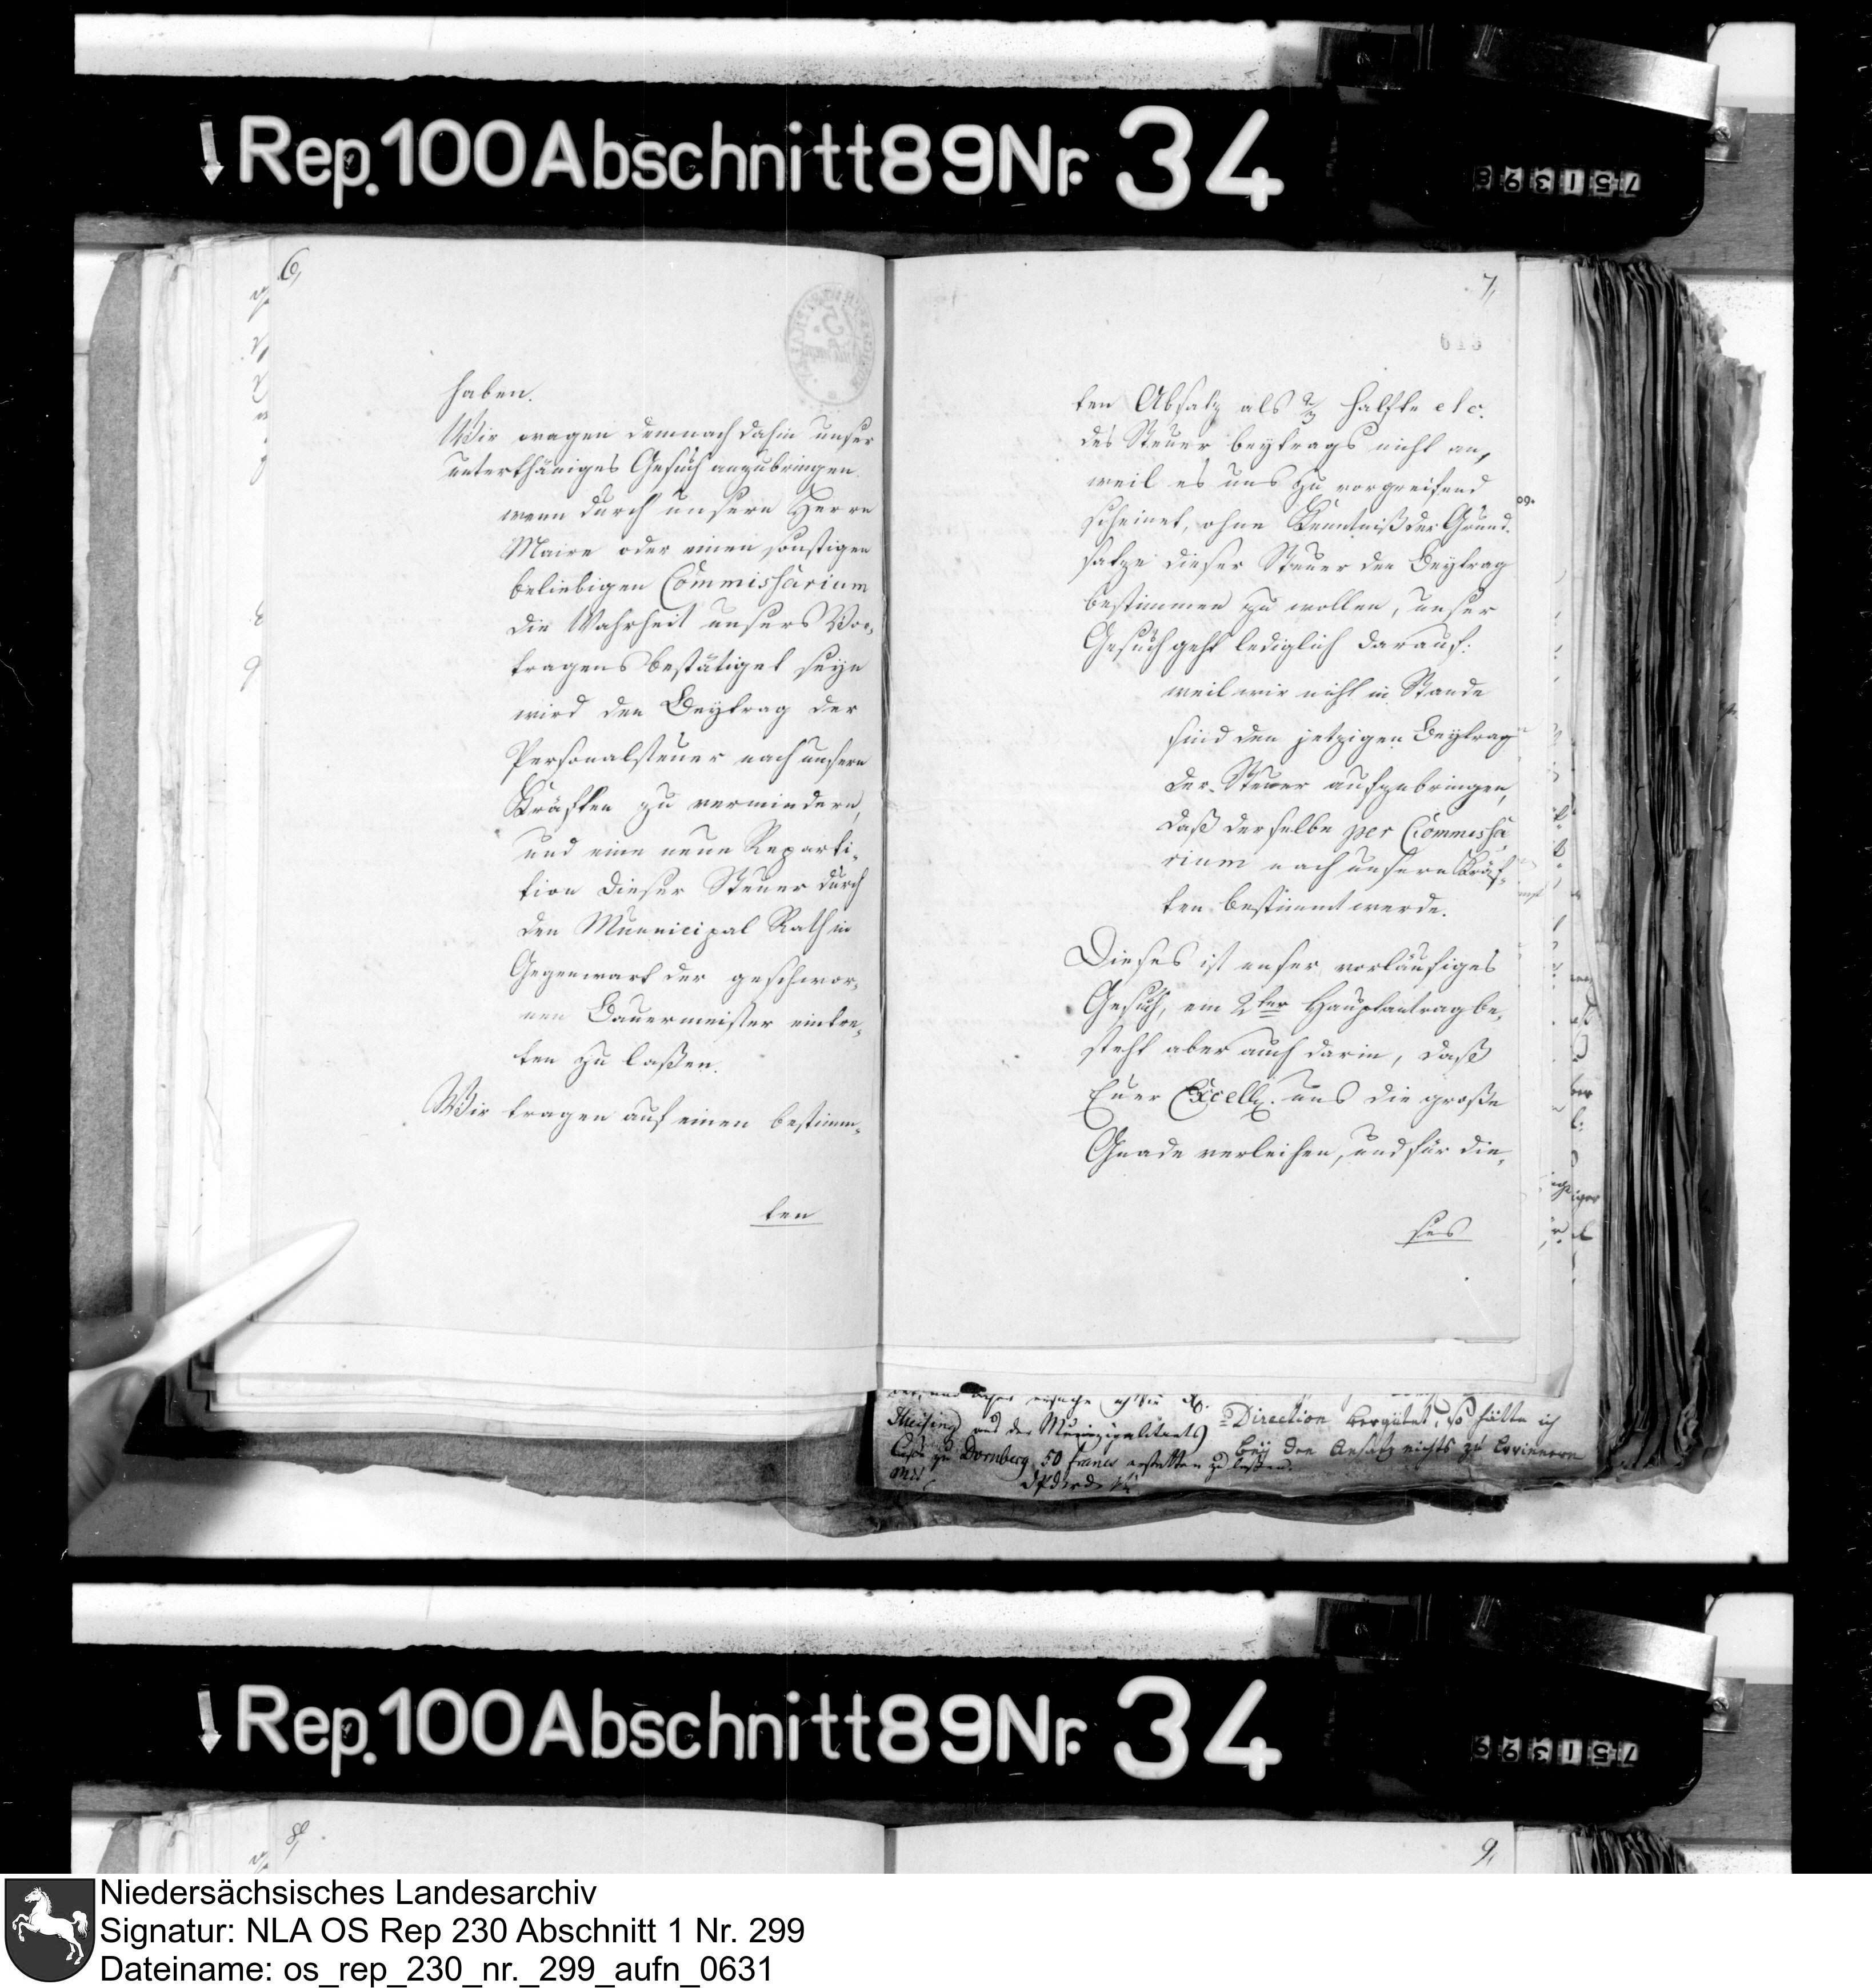 Rep. 100 Abschnitt 89 Nr. 34
751398
6,
haben.
Wir wagen demnach dahin unser
unterthäniges Gesuch anzubringen
wenn durch unsern Herrn
Maire oder einen sonstigen
beliebigen Commissarium
die Wahrheit unsers Vor-
tragens bestätiget seyn
wird den Beytrag der
Personalsteuer nach unsern
Kräften zu vermindern,
und eine neue Reparti-
tion dieser Steuer durch
den Municipal Rath in
Gegenwart der geschwor-
nen Bauermeister eintre-
ten zu laßen.
Wir tragen auf einen bestimm-
ten
7,
613
ten Absatz als 2/3 Halfte etc.
des Steuer beytrags nicht an,
weil es uns zu vorgreifend
scheinet, ohne Kenntniß der Grund-
satze dieser Steuer den Beytrag
bestimmen zu wollen, unser
Gesuch geht lediglich darauf:
weil wir nicht in Stande
sind den jetzigen Beytrag
der Steuer aufzubringen,
daß derselbe per Commissa
rium nach unsern Kräf-
ten bestimmt werde.
Dieses ist unser vorläufiges
Gesuch, ein 2ter Hauptantrag be-
steht aber auch darin, daß
Euer Excell. uns die große
Gnade verleihen, und für die-
ses
Direction vergütet, so hätte ich
aus der Municipalitaets
bey den Ansatz nichts zu erinnern
zu Dornberg 50 francs erstatten zu laßen.
Rep. 100 Abschnitt 89 Nr. 34
751399
8,
9,
Niedersächsisches Landesarchiv
Signatur: NLA OS Rep 230 Abschnitt 1 Nr. 299
Dateiname: os_rep_230_nr._299_aufn_0631